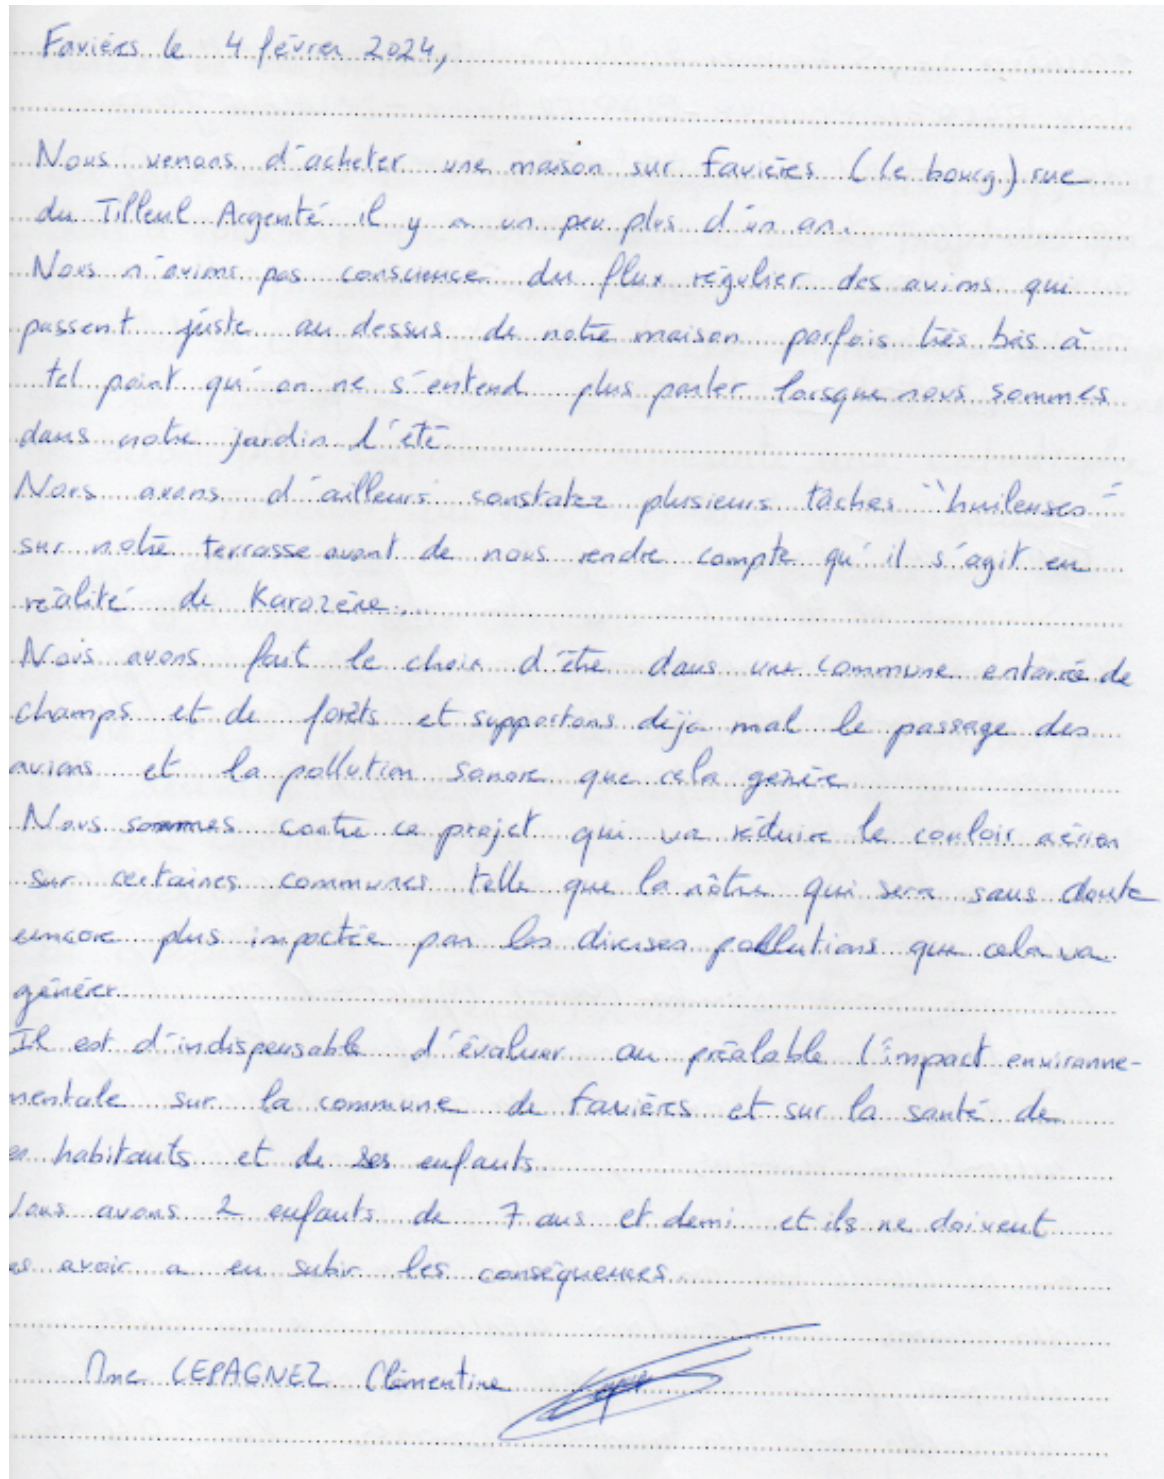 Favières le 4 février 2024,
Nous venons d'acheter une maison sur Favières (le bourg) rue
du Tilleul Argenté il y a un peu plus d'un an.
Nous n'avions pas conscience du flux régulier des avions qui
passent juste au dessus de notre maison parfois très bas à
tel point qu'on ne s'entend plus parler lorsque nous sommes
dans notre jardin l'été
Nous avons d'ailleurs constatez plusieurs tâches "huileuses"
sur notre terrasse avant de nous rendre compte qu'il s'agit en
réalité de Karozène.
Nous avons fait le choix d'être dans une commune entourée de
champs et de forêts et supportons déjà mal le passage des
avions et la pollution sonore que cela génère
Nous sommes contre ce projet qui va réduire le couloir aérien
sur certaines communes telle que la nôtre qui sera sans doute
encore plus impactée par les diverses pollutions que cela va
générer
Il est d'indispensable d'évaluer au préalable l'impact environne-
mentale sur la commune de Favières et sur la santé de
habitants et de ses enfants
Nous avons 2 enfants de 7 ans et demi et ils ne doivent
avoir a en subir les conséquences.
Mme LEPAGNEZ Clémentine